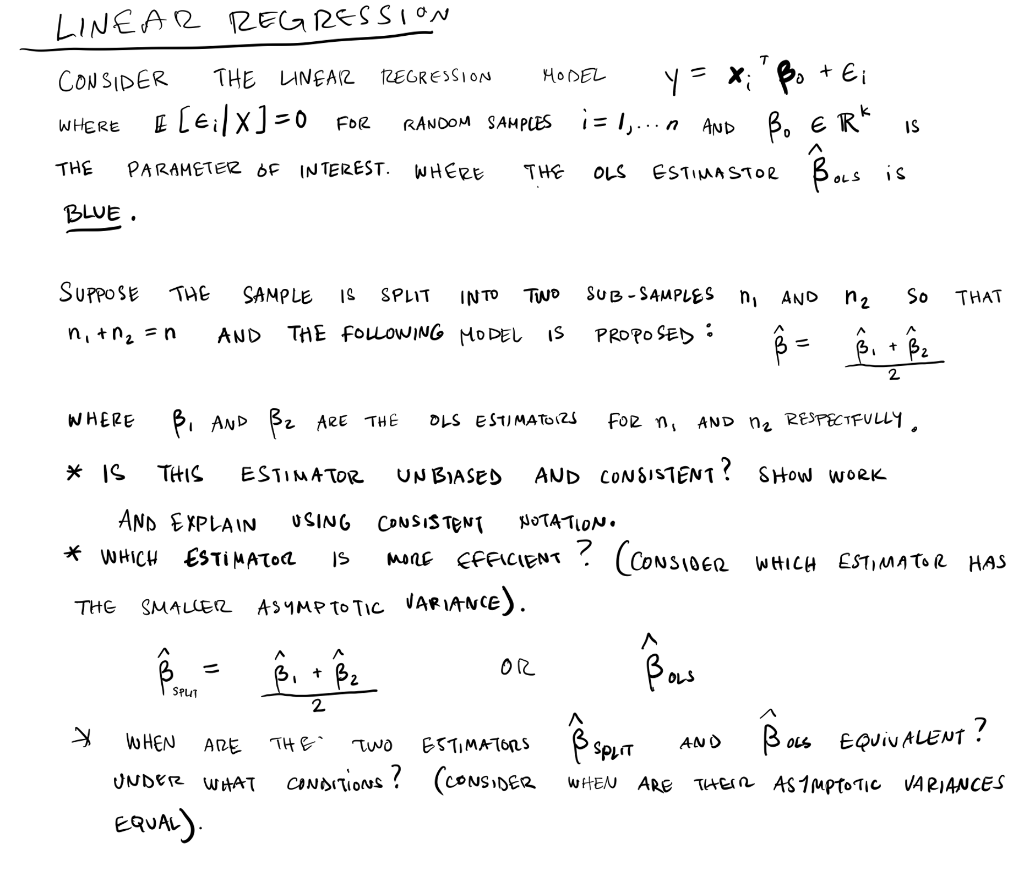 LINEAR REGRESSION
CONSIDER THE LINEAR REGRESSION MODEL y = xᵢᵀ β₀ + ϵᵢ
WHERE E[ϵᵢ|X]=0 FOR RANDOM SAMPLES i=1,...n AND β₀ ∈ ℝᵏ IS
THE PARAMETER OF INTEREST. WHERE THE OLS ESTIMASTOR β̂_OLS is
BLUE.
SUPPOSE THE SAMPLE IS SPLIT INTO TWO SUB-SAMPLES n₁ AND n₂ SO THAT
n₁+n₂=n AND THE FOLLOWING MODEL IS PROPOSED: β̂ = (β̂₁ + β̂₂)/2
WHERE β₁ AND β₂ ARE THE OLS ESTIMATORS FOR n₁ AND n₂ RESPECTFULLY.
* IS THIS ESTIMATOR UNBIASED AND CONSISTENT? SHOW WORK
AND EXPLAIN USING CONSISTENT NOTATION.
* WHICH ESTIMATOR IS MORE EFFICIENT? (CONSIDER WHICH ESTIMATOR HAS
THE SMALLER ASYMPTOTIC VARIANCE).
β̂_SPLIT = (β̂₁ + β̂₂)/2 OR β̂_OLS
* WHEN ARE THE TWO ESTIMATORS β̂_SPLIT AND β̂_OLS EQUIVALENT?
UNDER WHAT CONDITIONS? (CONSIDER WHEN ARE THEIR ASYMPTOTIC VARIANCES
EQUAL).